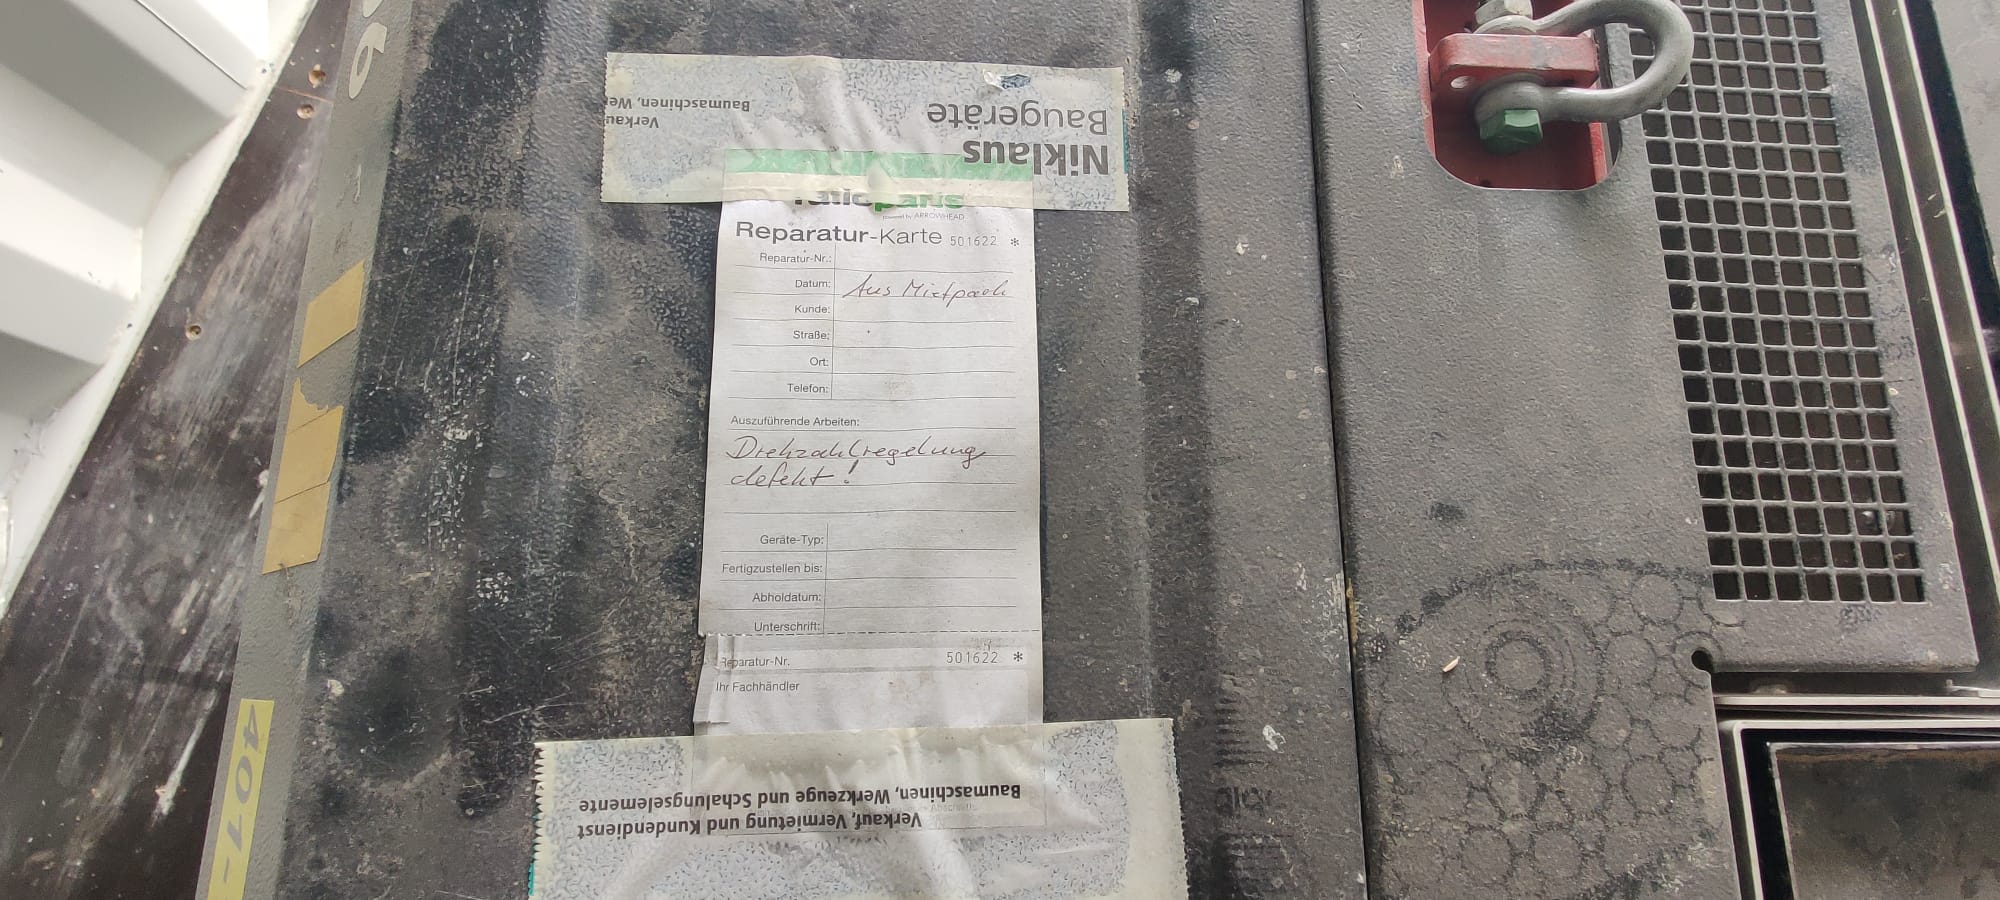 Niklaus
Baugeräte
Verkau
Baumaschinen, We
powered by ARROWHEAD
Reparatur-Karte 501622 *
Reparatur-Nr.:
Datum: Aus Mietpark
Kunde:
Straße:
Ort:
Telefon:
Auszuführende Arbeiten:
Drehzahlregelung
defekt!
Geräte-Typ:
Fertigzustellen bis:
Abholdatum:
Unterschrift:
Reparatur-Nr. 501622 *
Ihr Fachhändler
Verkauf, Vermietung und Kundendienst
Baumaschinen, Werkzeuge und Schalungselemente
401-